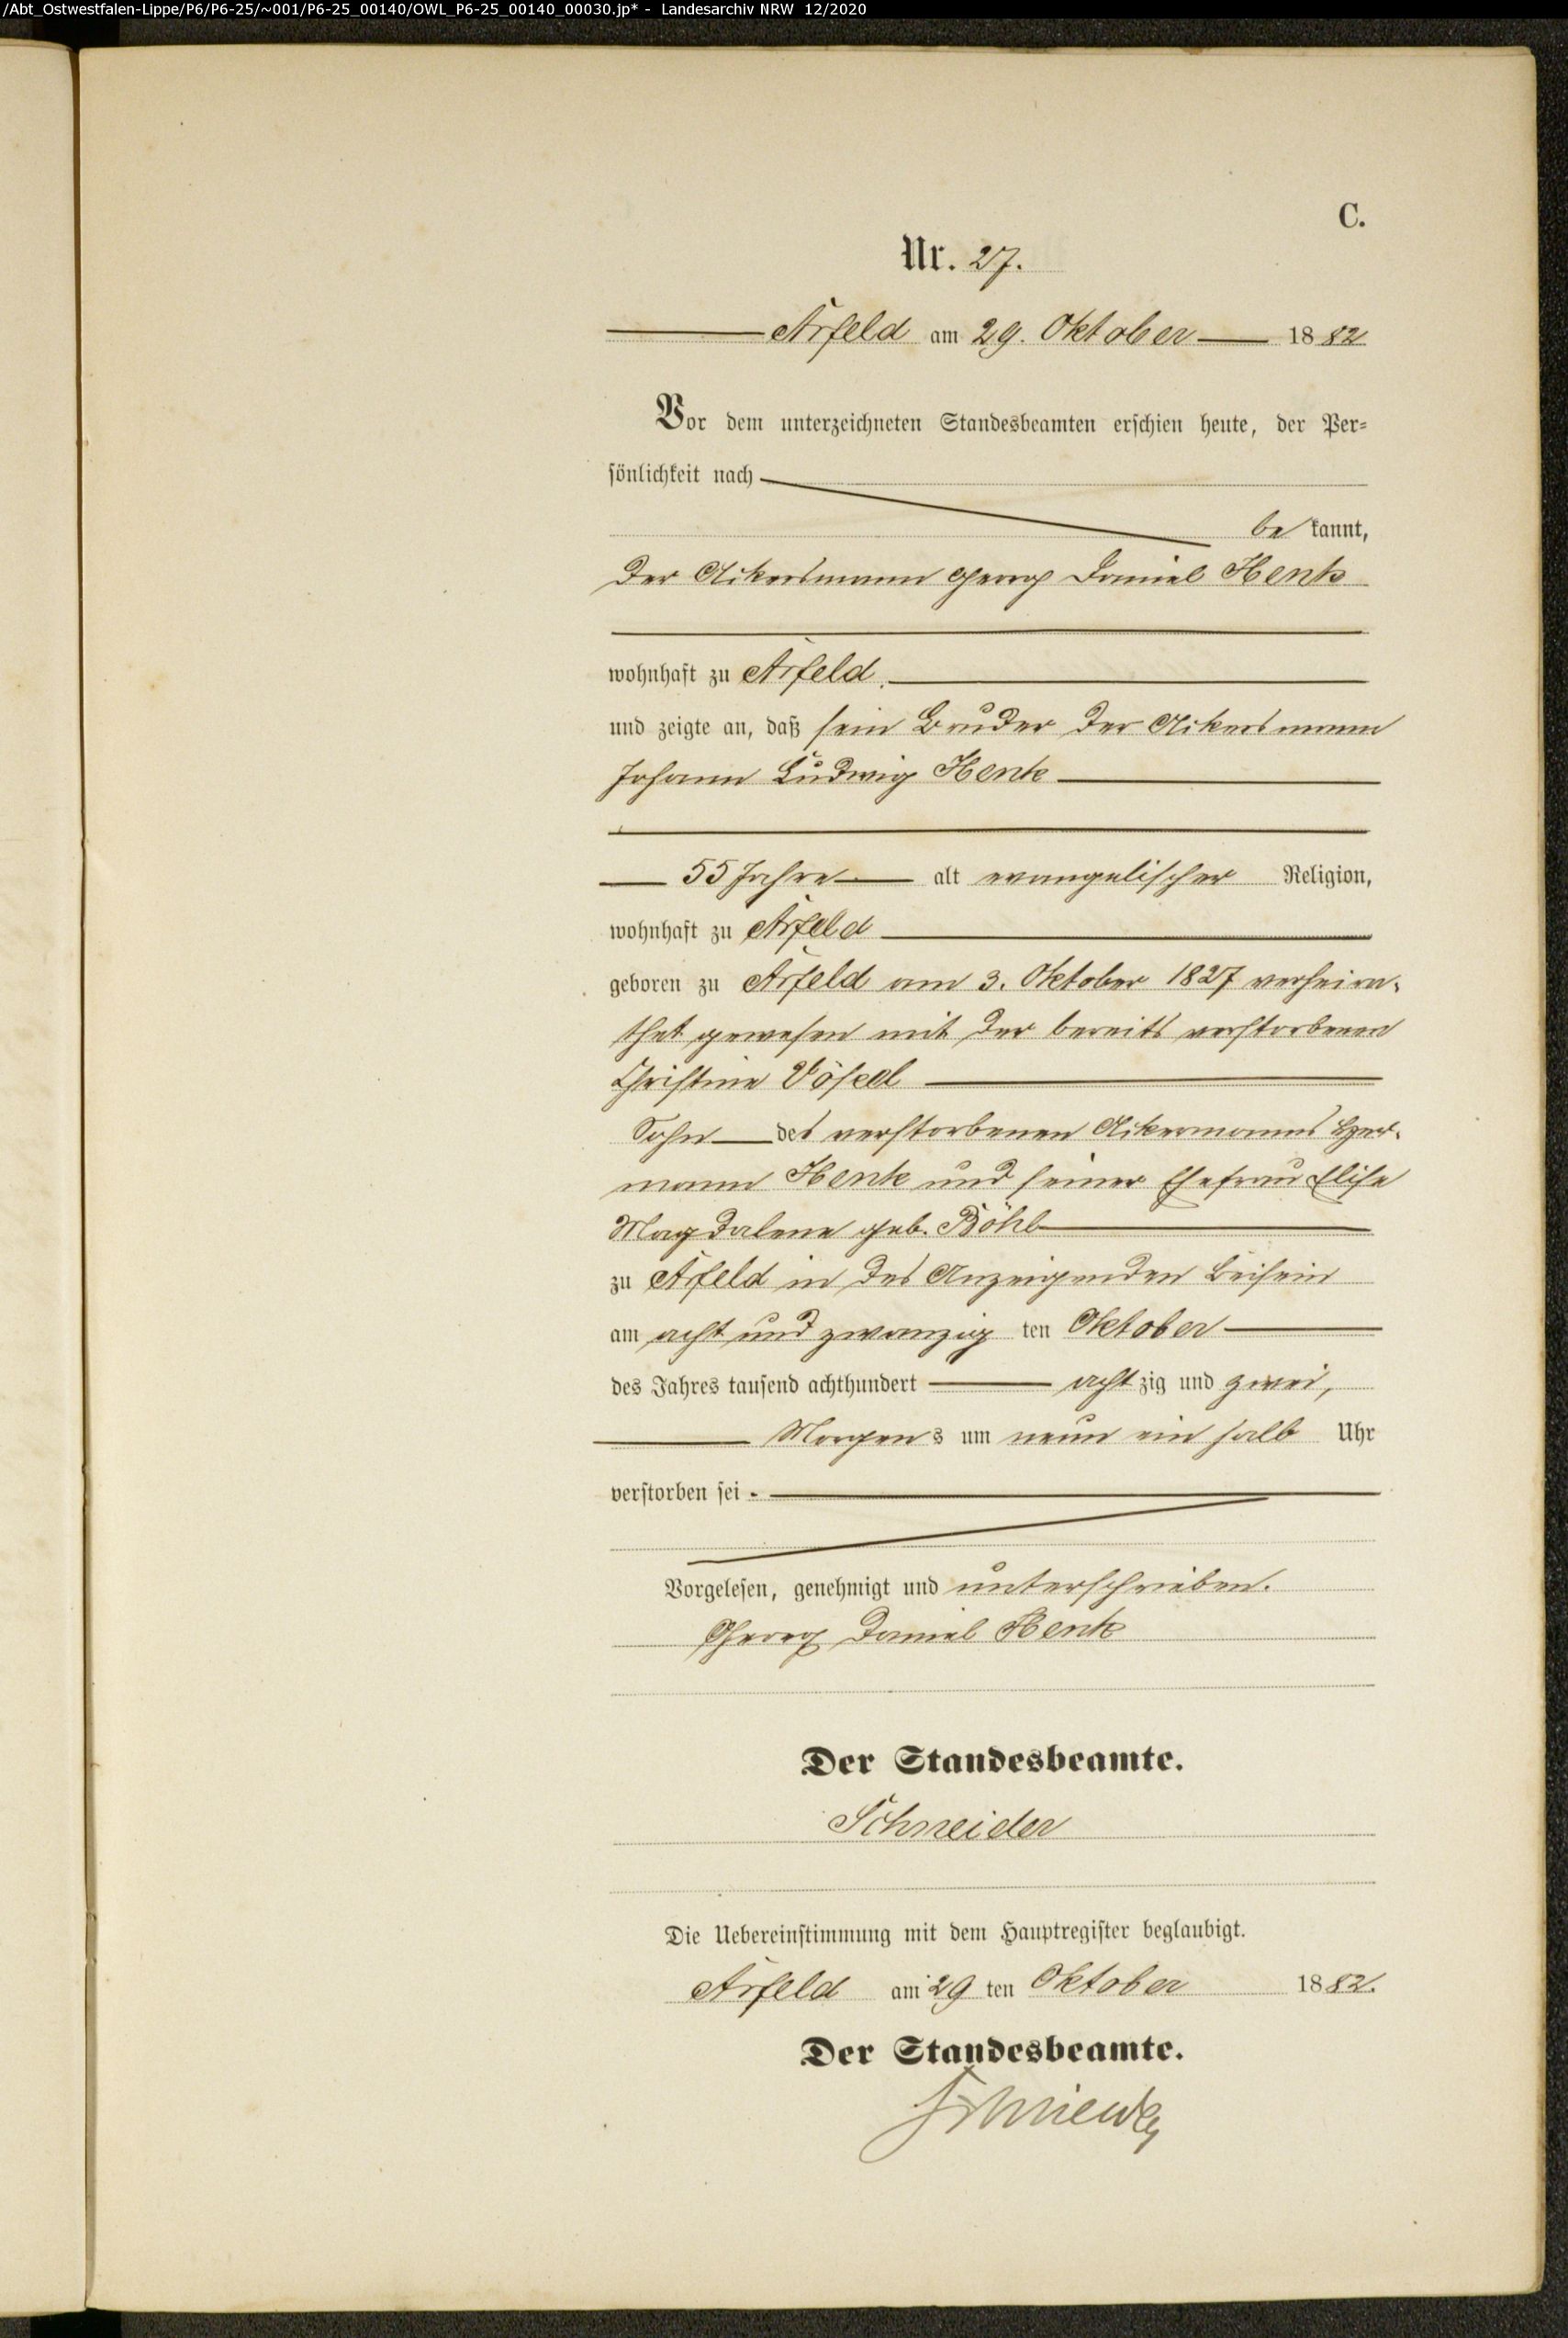 /Abt_Ostwestfalen-Lippe/P6/P6-25/~001/P6-25_00140/OWL_P6-25_00140_00030.jp* - Landesarchiv NRW 12/2020
C.
Nr. 27.
Arfeld am 29. Oktober 1882
Vor dem unterzeichneten Standesbeamten erschien heute, der Per-
sönlichkeit nach
be kannt,
der Ackersmann Georg Daniel Henk
wohnhaft zu Arfeld.
und zeigte an, daß sein Bruder der Ackersmann
Johann Ludwig Henk
55 Jahre alt evangelischer Religion,
wohnhaft zu Arfeld
geboren zu Arfeld am 3. Oktober 1827 verheira-
thet gewesen mit der bereits verstorbenen
Christine
Sohn des verstorbenen Ackermanns Her-
mann Henk und seiner Ehefrau Elise
Magdalene geb. Böhl
zu Arfeld in des Anzeigenden Beisein
am acht und zwanzig ten Oktober
des Jahres tausend achthundert acht zig und zwei,
Morgens um neun ein halb Uhr
verstorben sei.
Vorgelesen, genehmigt und unterschrieben.
Georg Daniel Henk
Der Standesbeamte.
Schneider
Die Uebereinstimmung mit dem Hauptregister beglaubigt.
Arfeld am 29 ten Oktober 1882.
Der Standesbeamte.
Schneider